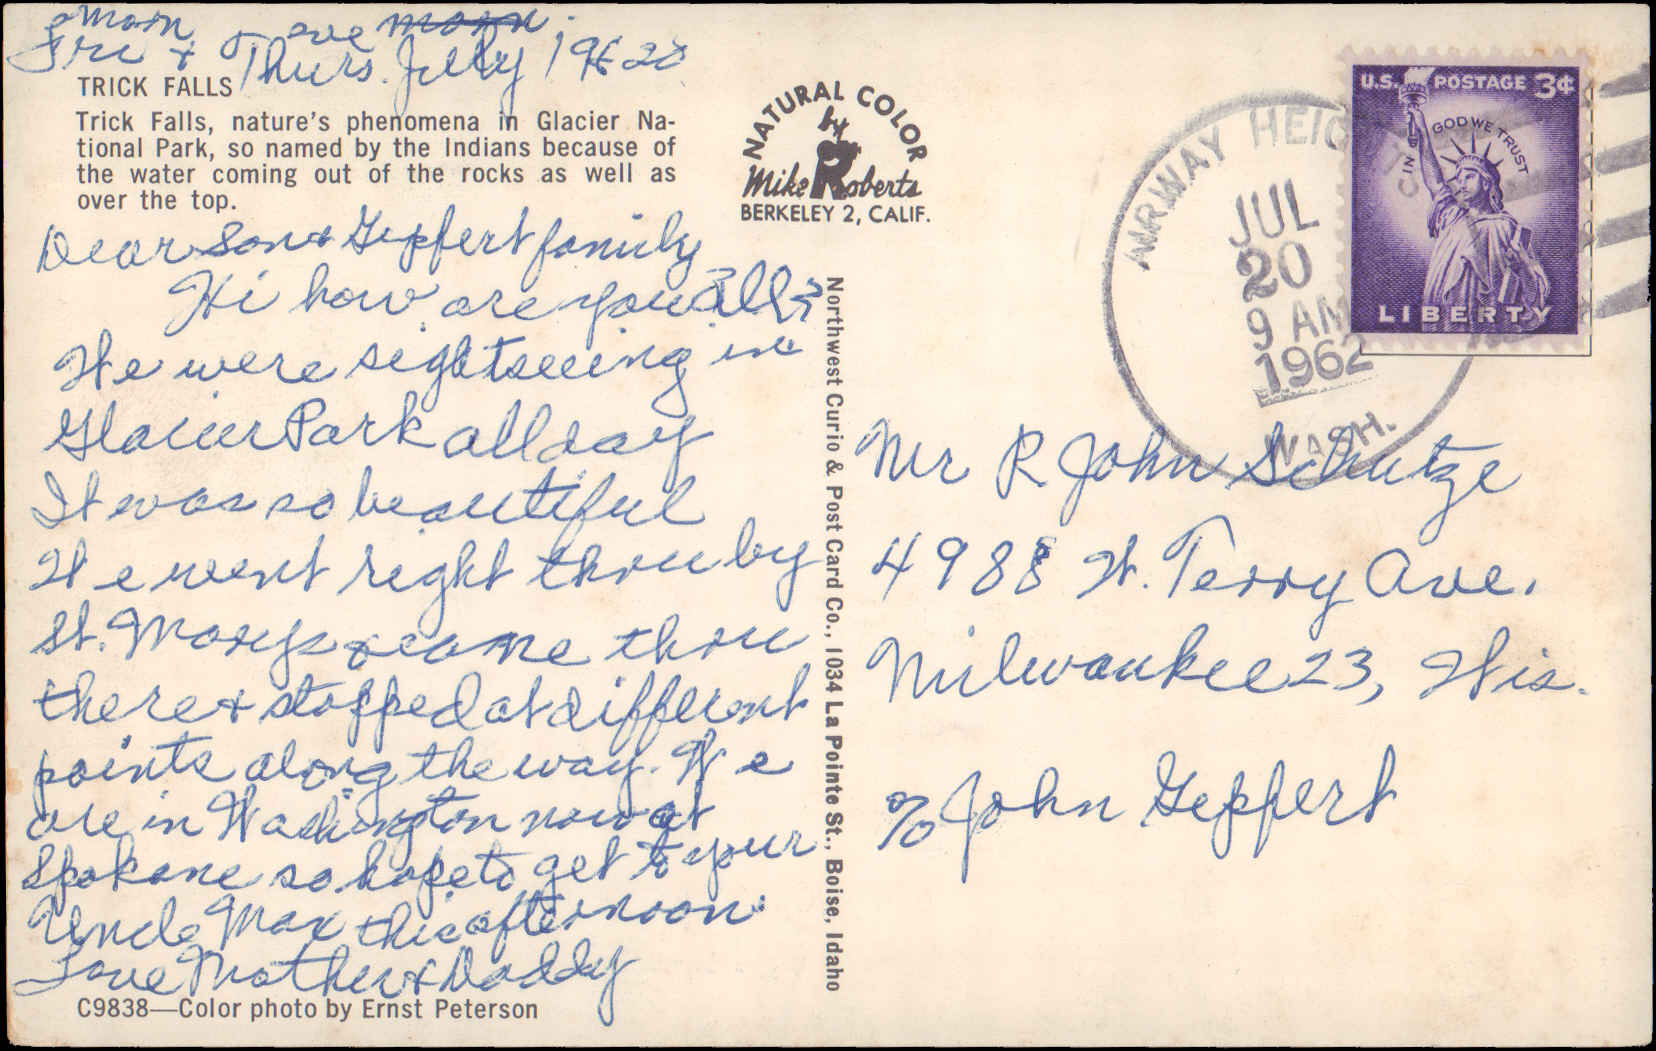 morn
Fri & Thurs. eve morn.
July 19 & 20
TRICK FALLS
Trick Falls, nature's phenomena in Glacier Na-
tional Park, so named by the Indians because of
the water coming out of the rocks as well as
over the top.
Dear Son & Geppert family
Hi how are you all?
We were sightseeing in
Glacier Park all day
It was so beautiful
We went right thru by
St. Marys & came thru
there & stopped at different
points along the way. We
are in Washington now at
Spokane so hope to get to your
Uncle Max this afternoon.
Love Mother & Daddy
C9838—Color photo by Ernst Peterson
NATURAL COLOR
by
Mike Roberts
BERKELEY 2, CALIF.
Northwest Curio & Post Card Co., 1034 La Pointe St., Boise, Idaho
AIRWAY HEIG
JUL
20
9 AM
1962
WASH.
U.S. POSTAGE 3¢
IN GOD WE TRUST
LIBERTY
Mr R John Schutze
4988 W. Terry Ave.
Milwaukee 23, Wis.
c/o John Geppert